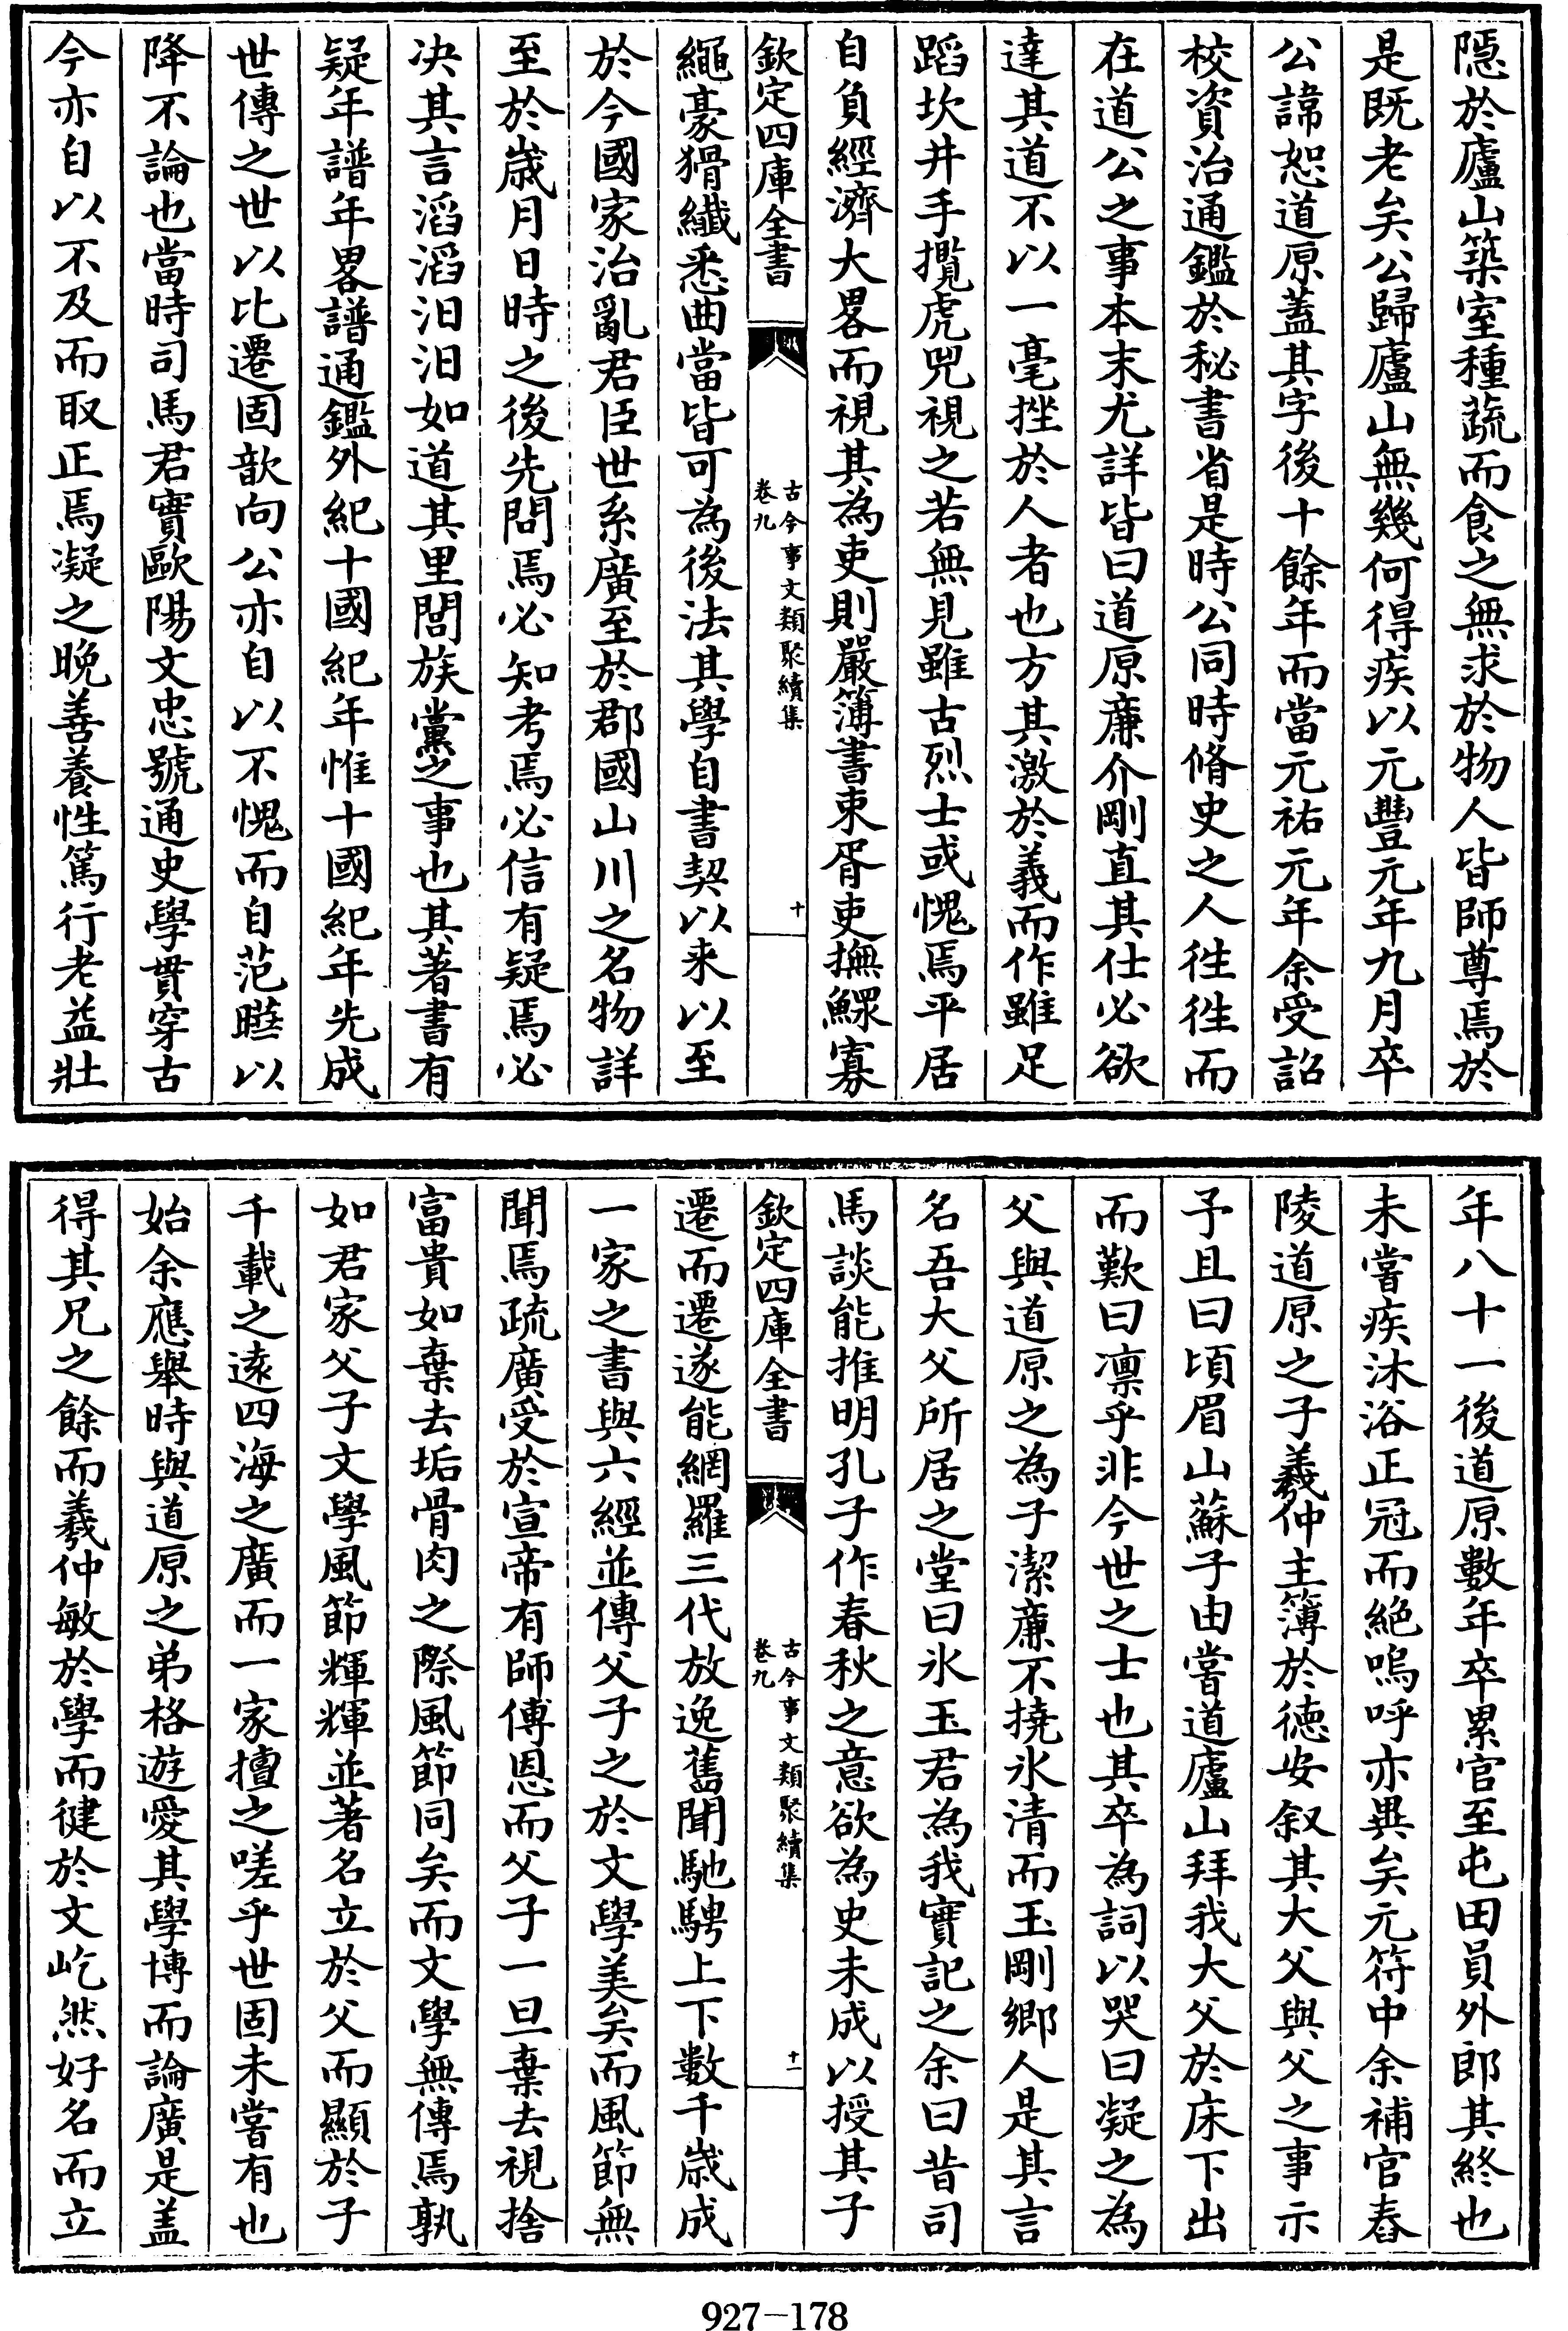 隱於廬山築室種蔬而食之無求於物人皆師尊焉於
是既老矣公歸廬山無幾何得疾以元豐元年九月卒
公諱恕道原蓋其字後十餘年而當元祐元年余受詔
校資治通鑑於秘書省是時公同時脩史之人徃徃而
在道公之事本末尤詳皆曰道原亷介剛直其仕必欲
達其道不以一毫挫於人者也方其激於義而作雖足
蹈坎井手攬虎兕視之若無見雖古烈士或愧焉平居
自負經濟大畧而視其為吏則嚴簿書束胥吏撫鰥寡
欽定四庫全書
古今事文類聚續集
卷九
十
繩豪猾纖悉曲當皆可為後法其學自書契以來以至
於今國家治亂君臣世系廣至於郡國山川之名物詳
至於歲月日時之後先問焉必知考焉必信有疑焉必
决其言滔滔汩汩如道其里閭族黨之事也其著書有
疑年譜年畧譜通鑑外紀十國紀年惟十國紀年先成
世傳之世以比遷固歆向公亦自以不愧而自范瞱以
降不論也當時司馬君實歐陽文忠號通史學貫穿古
今亦自以不及而取正焉凝之晚善養性篤行老益壯
年八十一後道原數年卒累官至屯田員外郎其終也
未嘗疾沐浴正冠而絶嗚呼亦異矣元符中余補官舂
陵道原之子羲仲主簿於德安叙其大父與父之事示
予且曰頃眉山蘇子由嘗道廬山拜我大父於床下出
而歎曰凛乎非今世之士也其卒為詞以哭曰凝之為
父與道原之為子潔亷不撓氷清而玉剛鄉人是其言
名吾大父所居之堂曰氷玉君為我實記之余曰昔司
馬談能推明孔子作春秋之意欲為史未成以授其子
欽定四庫全書
古今事文類聚續集
卷九
十一
遷而遷遂能網羅三代放逸舊聞馳騁上下數千歲成
一家之書與六經並傳父子之於文學美矣而風節無
聞焉疏廣受於宣帝有師傅恩而父子一旦棄去視捨
富貴如棄去垢骨肉之際風節同矣而文學無傳焉孰
如君家父子文學風節輝輝並著名立於父而顯於子
千載之逺四海之廣而一家擅之嗟乎世固未嘗有也
始余應舉時與道原之弟格遊愛其學博而論廣是盖
得其兄之餘而羲仲敏於學而徤於文屹然好名而立
927-178